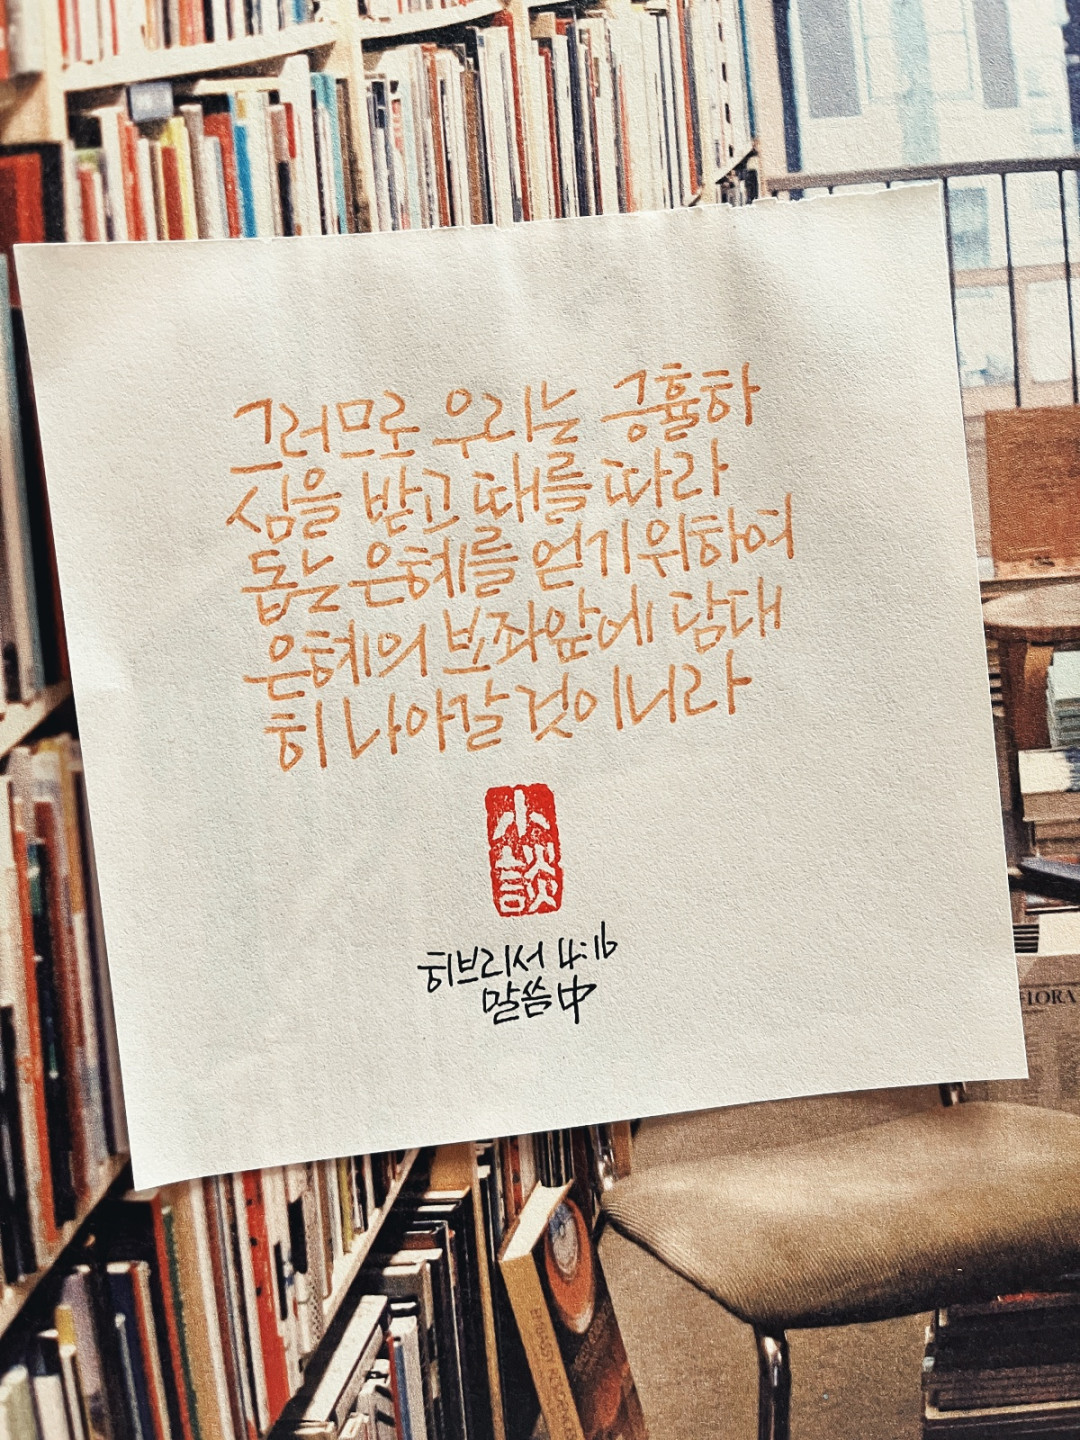 그러므로 우리는 긍휼하
심을 받고 때를 따라
돕는 은혜를 얻기위하여
은혜의 보좌앞에 담대
히 나아갈 것이니라
小談
히브리서 4:16
말씀 中
FLORA